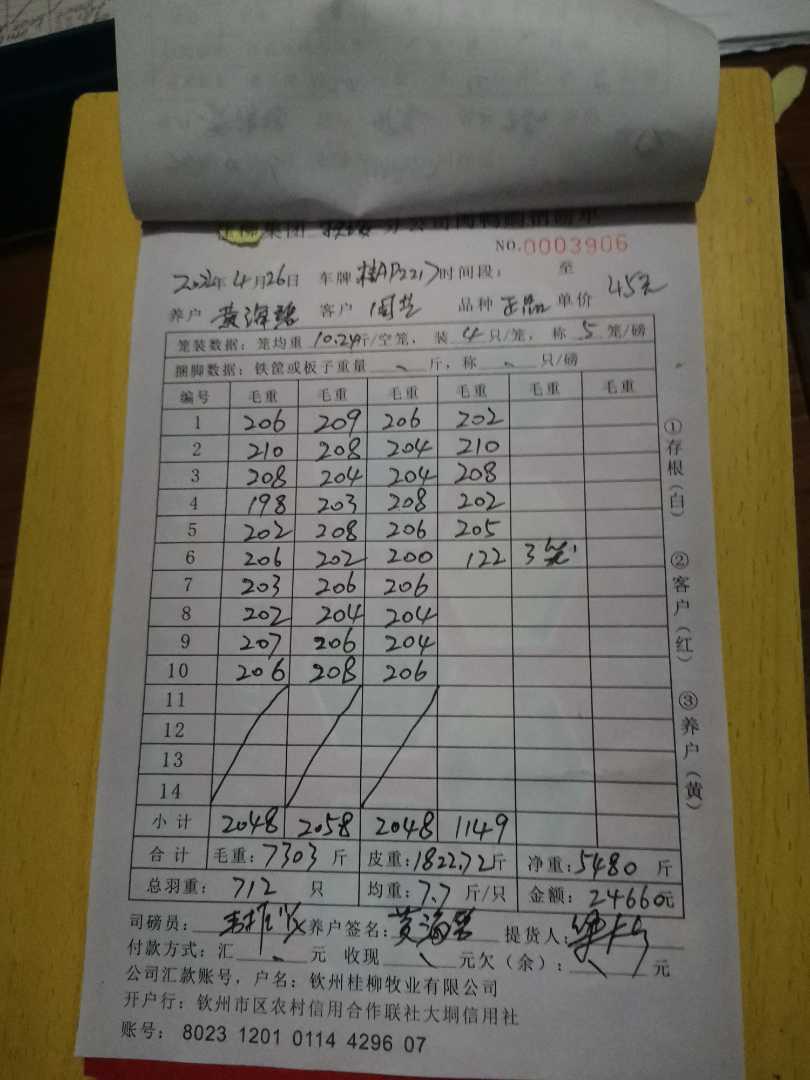 桂柳集团 分公司肉鸭销磅单
NO.0003906
2022年4月26日 车牌 桂AP2217 时间段： 至
养户 黄海 客户 周 品种 正品 单价 45元
笼装数据：笼均重 10.24斤/空笼，装 4 只/笼，称 5 笼/磅
捆脚数据：铁筐或板子重量 、 斤，称 、 只/磅
编号 毛重 毛重 毛重 毛重 毛重 毛重
1 206 209 206 202
2 210 208 204 210
3 208 204 204 208
4 198 203 208 202
5 202 208 206 205
6 206 202 200 122 3笼
7 203 206 206
8 202 204 204
9 207 206 204
10 206 208 206
11
12
13
14
小计 2048 2058 2048 1149
合计 毛重：7303 斤 皮重：1822.72斤 净重：5480 斤
总羽重：712 只 均重：7.7 斤/只 金额：24660元
司磅员： 养户签名：黄海 提货人：
付款方式：汇 、 元 收现 、 元欠（余）： 、 元
公司汇款账号，户名：钦州桂柳牧业有限公司
开户行：钦州市区农村信用合作联社大垌信用社
账号： 8023 1201 0114 4296 07
①存根（白） ②客户（红） ③养户（黄）